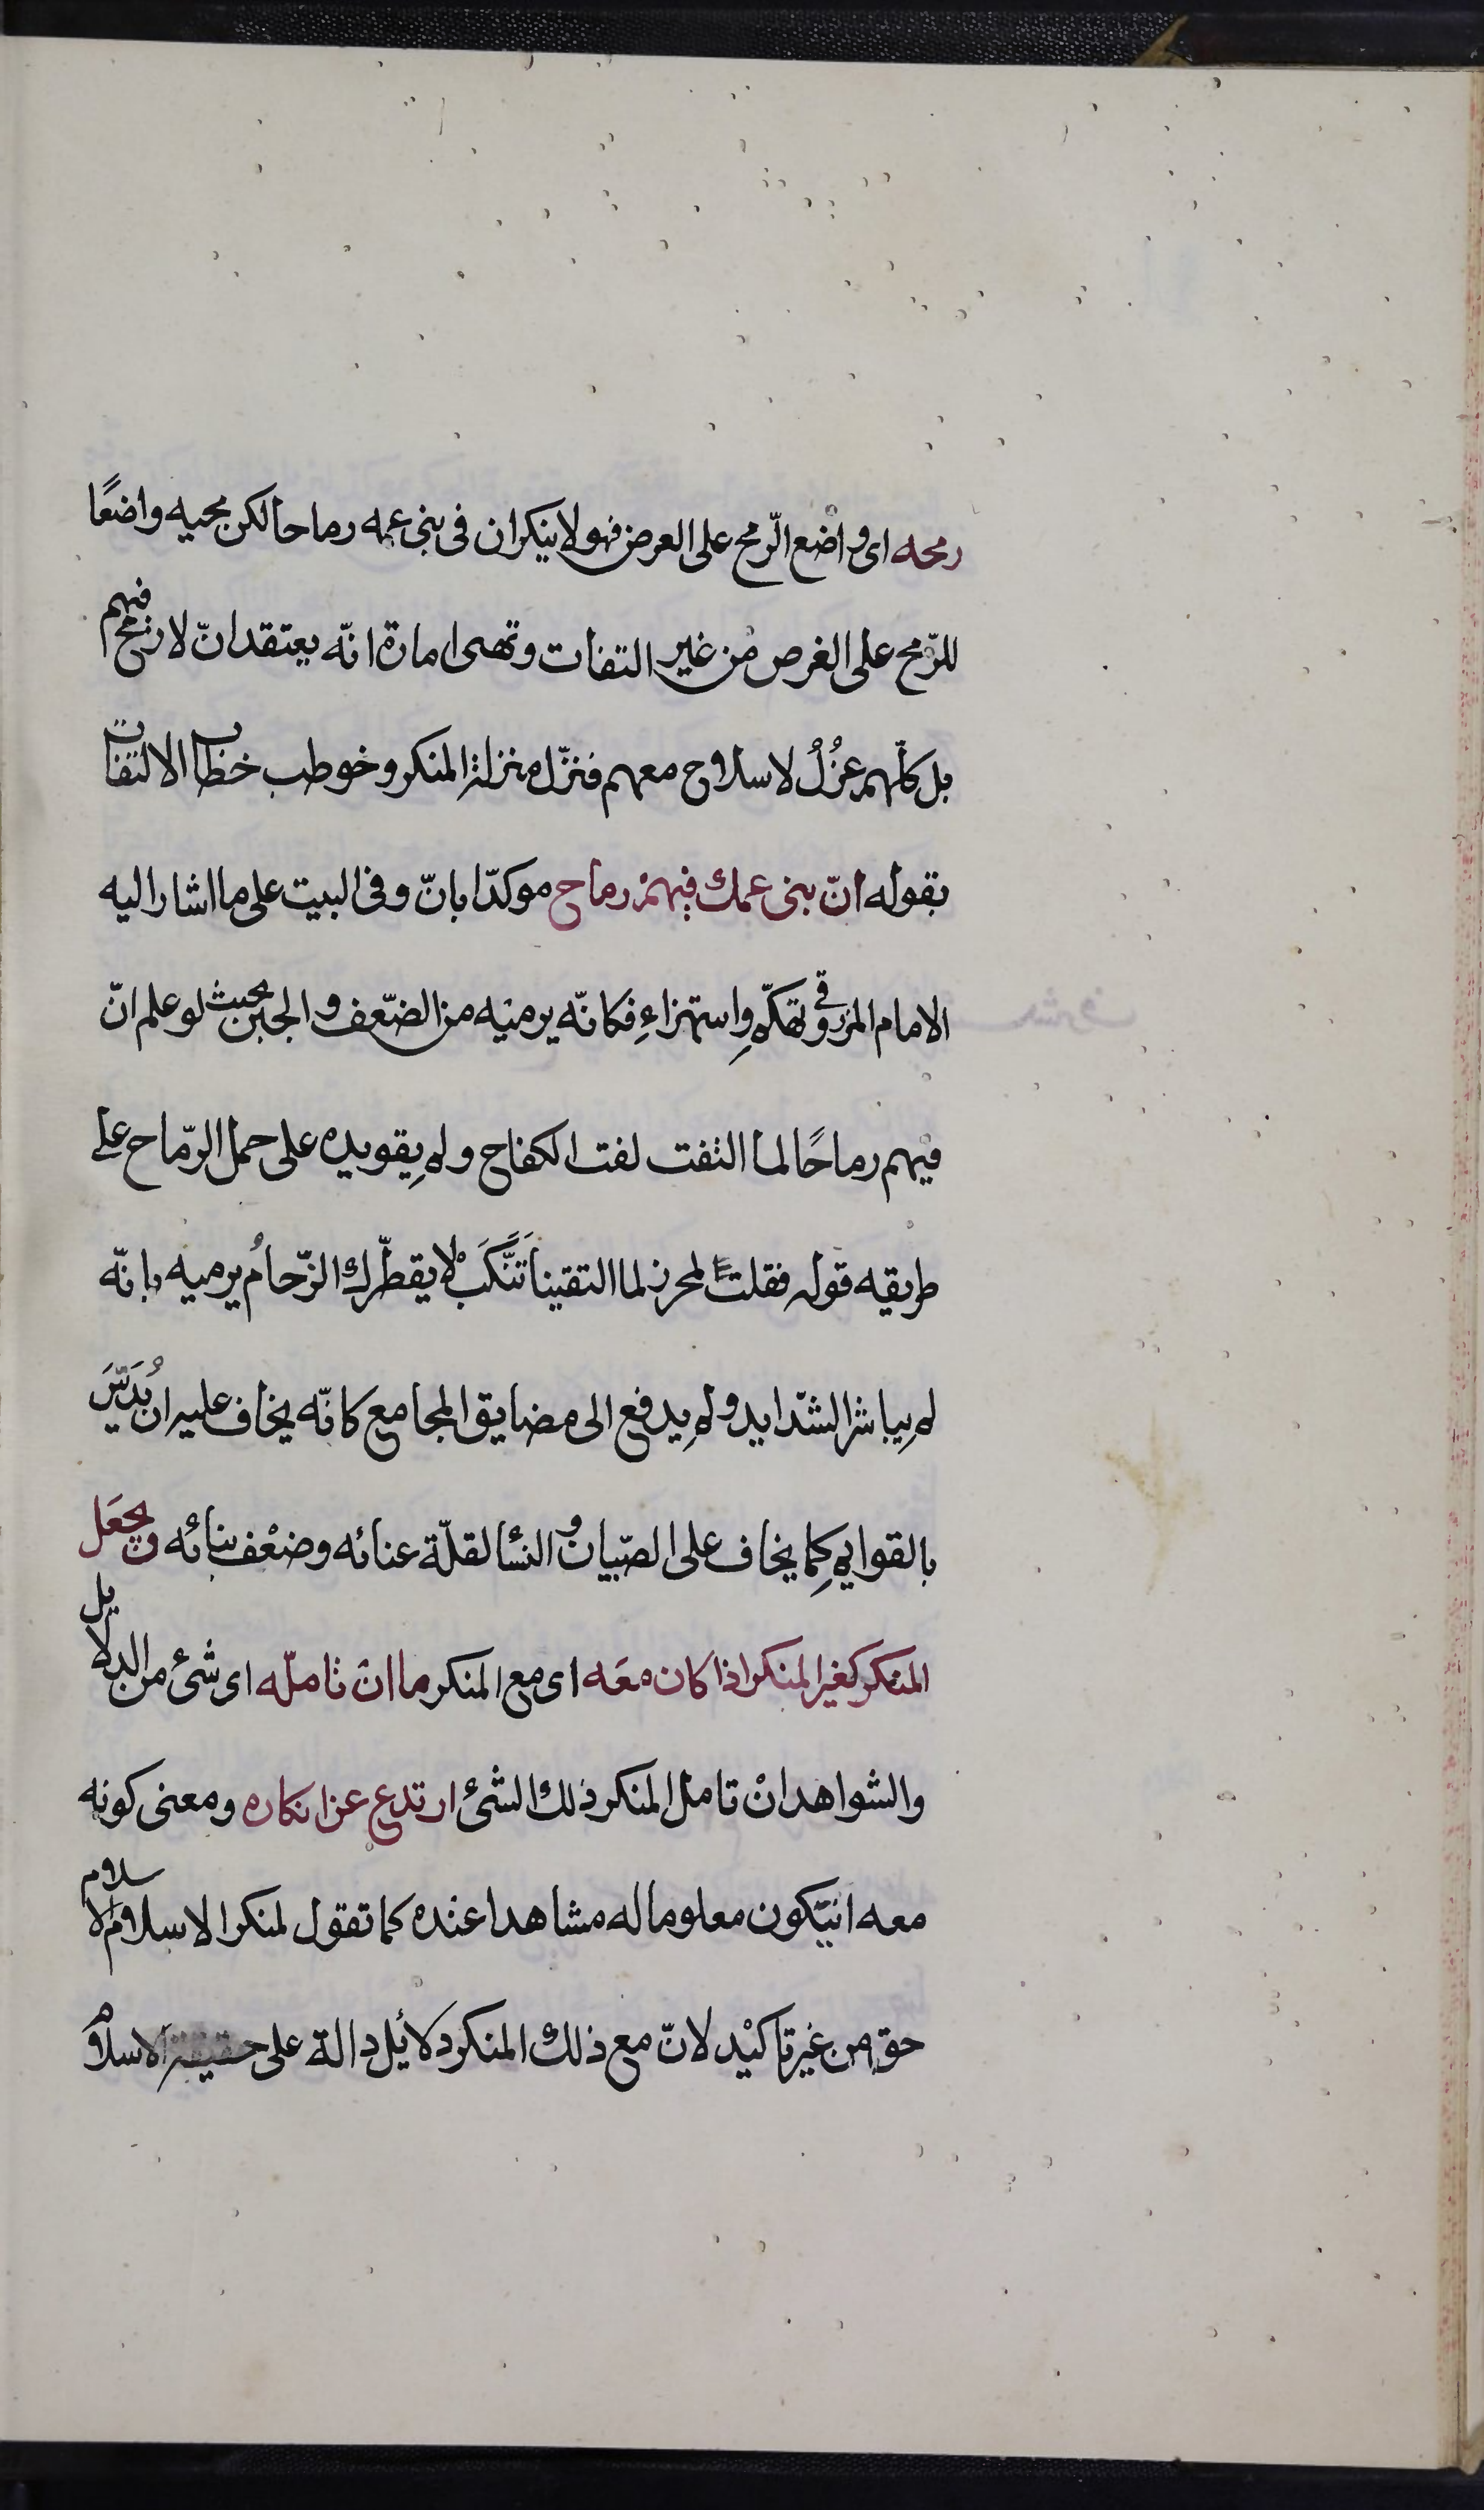 رمحه اى واضع الرّمح على العرض فهو لا ينكر ان فى بنى عمه رماحا لكن مجيه واضعًا
للرّمح على الغرض من غير التفات وتهىء امارة انّه يعتقد انّ لا رمح فيهم
بل كلّهم عزُلُ لا سلاح معهم فنزّل منزلة المنكر وخوطب خطاب الالتفات
بقوله انّ بنى عمك فيهم رماح موكدّا بانّ وفى البيت على ما اشار اليه
الامام المرزوقى تهكّم واستهزاءِ فكانّه يرميه من الضّعف والجبن بحيث لو علم انّ
فيهم رماحًا لما التفت لفت الكفاح ولم يقو يده على حمل الرّماح على
طريقه قوله فقلت لمحرز لما التقينا تَنَّكَبْ لا يقطّرك الزّحامُ يرميه بانّه
لم يباشر الشّدايد ولم يدفع الى مضايق المجامع كانّه يخاف عليه ان يُدَسَّ
بالقوايم كما يخاف على الصّبيان والنسأ لقلّة عنائه وضعْف بنائه ويجعَل
المنكر كغير المنكر اذا كان معَه اى مع المنكر ما ان تاملّه اى شئ من الدلايل
والشواهد انْ تامل المنكر ذلك الشئ ارتدع عن انكاره ومعنى كونه
معه انيّكون معلوما له مشاهدا عنده كما تقول لمنكر الاسلام الاسلام
حق من غير تاكيْد لانّ مع ذلك المنكر دلائل دالة على حقيقة الاسلام